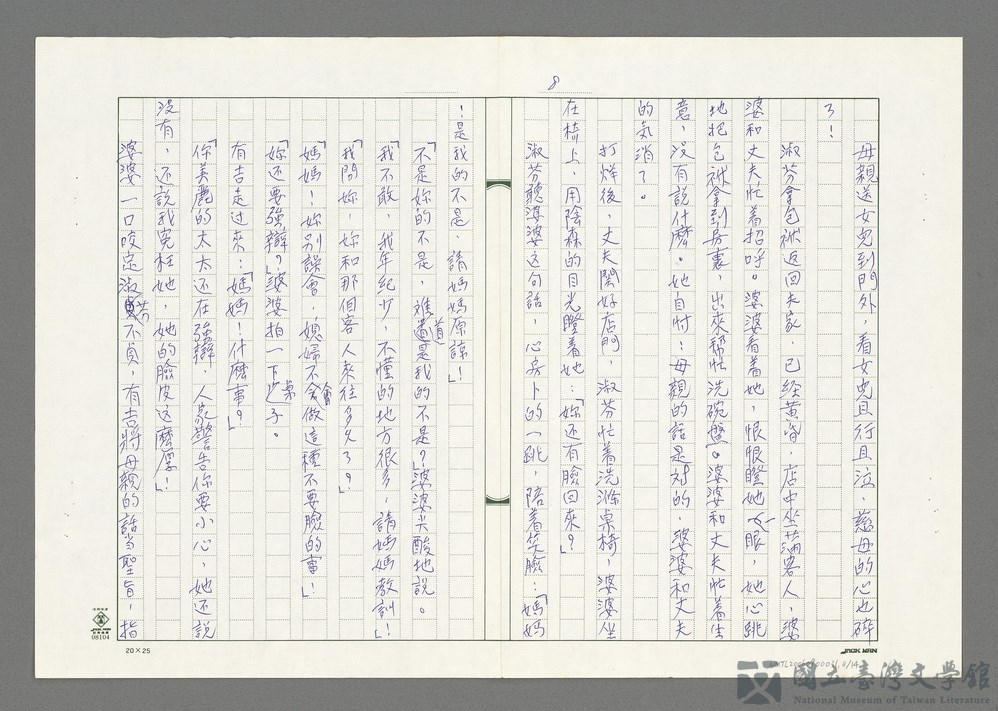 8
母親送女兒到門外，看女兒且行且泣，慈母的心也碎
了！
淑芬拿包袱返回夫家，已经黄昏，店中坐满客人，婆
婆和丈夫忙着招呼。婆婆看着她，恨恨瞪她一眼，她心跳
地把包袱拿到房裏，出來帮忙洗碗盤。婆婆和丈夫忙着生
意，没有説什麽。她自忖：母親的話是对的，婆婆和丈夫
的気消了。
打烊後，丈夫関好店門，淑芬忙着洗滌桌椅，婆婆坐
在椅上，用陰森的目光瞪着她：「妳还有臉回來？」
淑芬聽婆婆这句話，心房卜的一跳，陪着笑臉：「媽媽
！是我的不是，請媽媽原諒！」
「不是妳的不是，难道是我的不是？」婆婆尖酸地説。
「我不敢，我年紀少，不懂的地方很多，請媽媽教訓！」
「我問妳，妳和那個客人來往多久了？」
「媽媽！妳别誤會，媳婦不會做這種不要臉的事！」
「妳还要強辯？」婆婆拍一下桌子。
有吉走过來：「媽媽！什麽事？」
「你美麗的太太还在強辯，人家警告你要小心，她还説
没有，还説我寃枉她，她的臉皮这麽厚！」
婆婆一口咬定淑芬不貞，有吉將母親的話当聖旨，指
20×25
08104
JACK MAN
國立臺灣文學館
National Museum of Taiwan Literature